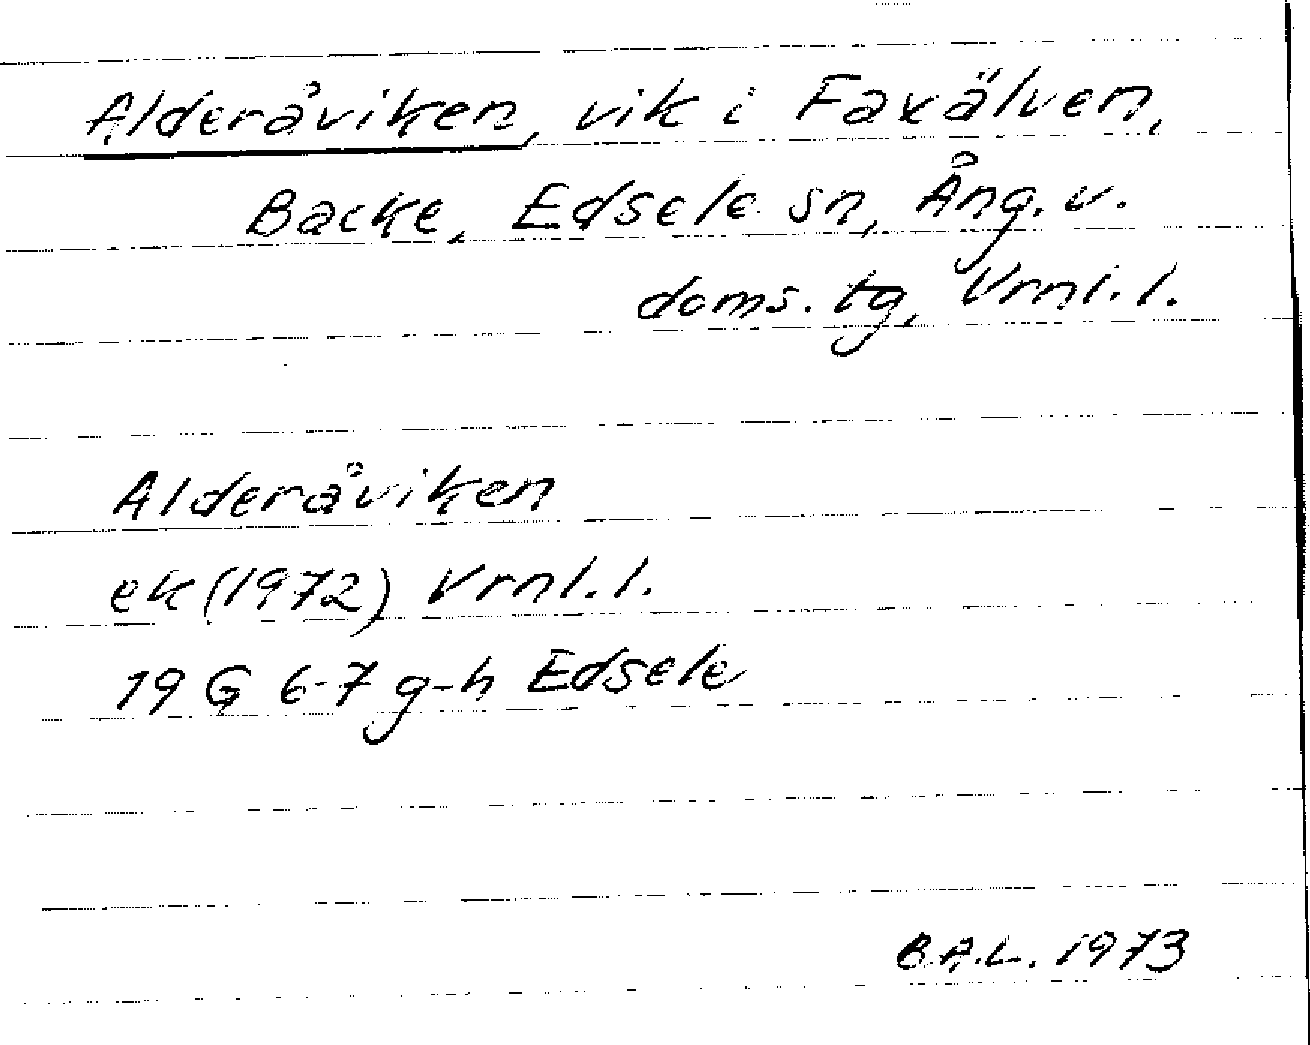 Alderåviken, vik i Faxälven,
Backe, Edsele sn, Ång. v.
doms. tg, Vrnl. l.
Alderåviken
ek (1972) Vrnl. l.
19 G 6-7 g-h Edsele
B.A.L. 1973